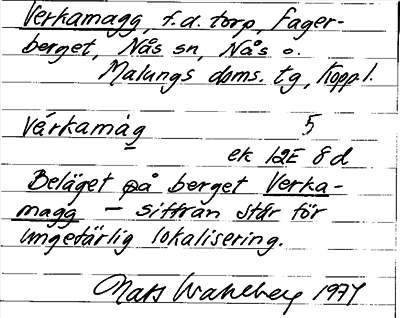 Verkamagg, f.d. torp, Fager-
berget, Nås sn, Nås o.
Malungs doms. tg, Kopp l.
Vérkamàg 5
ek 12E 8d
Beläget på berget Verka-
magg – siffran står för
ungefärlig lokalisering.
Mats Wahlberg 1974